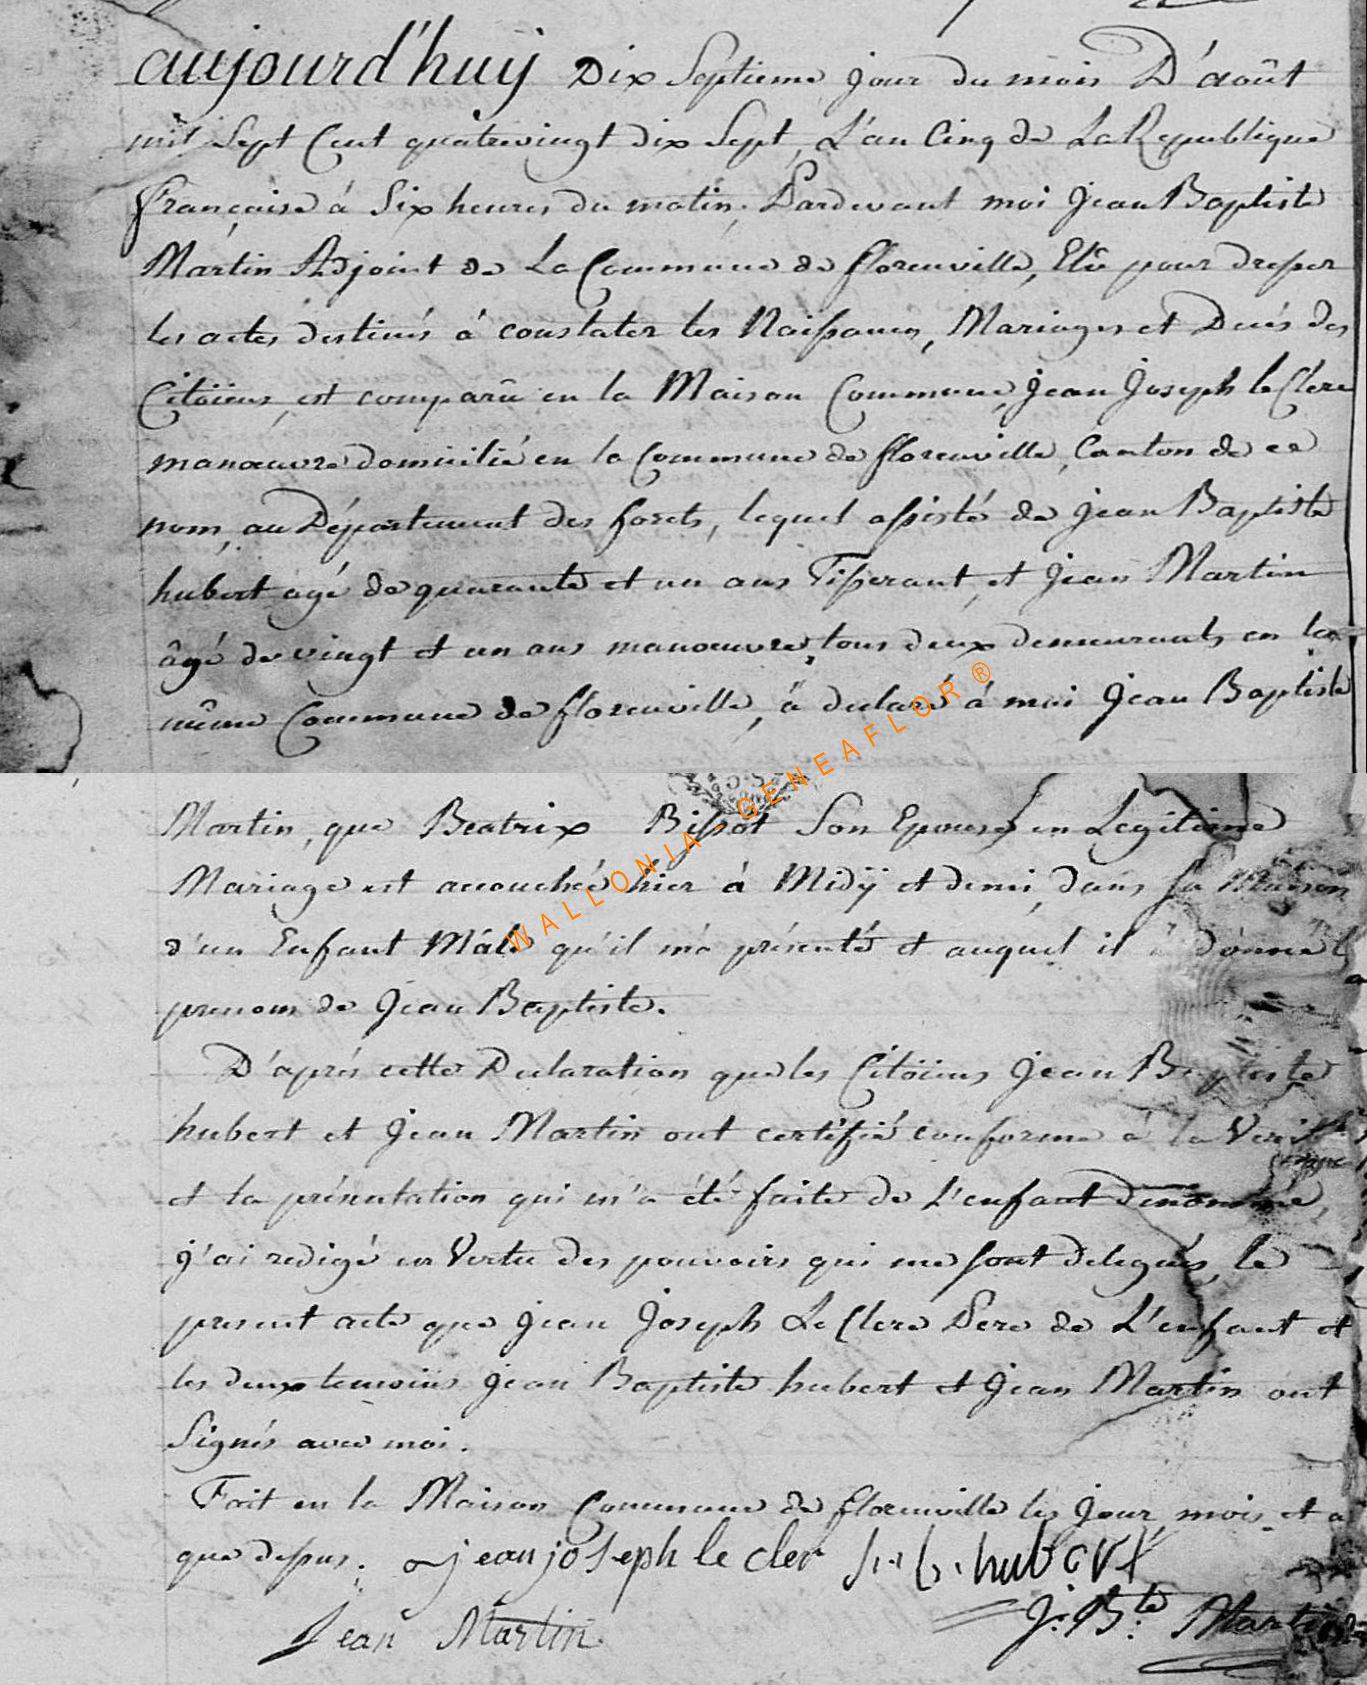 aujourd'huÿ Dix Septieme jour du mois D'août
mil Sept Cent quatrevingt dix Sept, L'an Cinq de La Republique
française à Six heures du matin, Pardevant moi Jean Baptiste
Martin Adjoint de La Commune de florenville, Elû pour dresser
les actes destinés à constater les Naissances, Mariages et Decés des
Citöiens, est comparû en la Maison Commune, Jean Joseph le Clere
manœuvre domicilié en la Commune de florenville, Canton de ce
nom, au Département des forets, lequel assisté de Jean Baptiste
hubert agé de quarante et un ans Tisserant, et Jean Martin
âgé de vingt et un ans manœuvre, tous deux demeurants en la
même Commune de florenville, à declaré à moi Jean Baptiste
Martin, que Beatrix Bissot Son Epouse en Legitime
Mariage est accouchée hier à Midÿ et demi, dans sa Maison
d'un Enfant Mâle qu'il m'a présenté et auquel il à donné l
prenom de Jean Baptiste.
D'aprés cette Declaration que les Citöiens Jean Baptiste
hubert et Jean Martin ont certifié conforme à la Verité
et la présentation qui m'a été faite de L'enfant denommé,
j'ai redigé en Vertu des pouvoirs qui me sont delegués, le
present acte que Jean Joseph Le Clere Pere de L'enfant et
les deux temoins Jean Baptiste hubert et Jean Martin ont
Signés avec moi.
Fait en la Maison Commune de florenville les Jour, mois et a
que dessus.
jean joseph le cler
j. b. hubert
Jean Martin
J. Bte. Martin
WALLONIA - GENEAFLOR ®